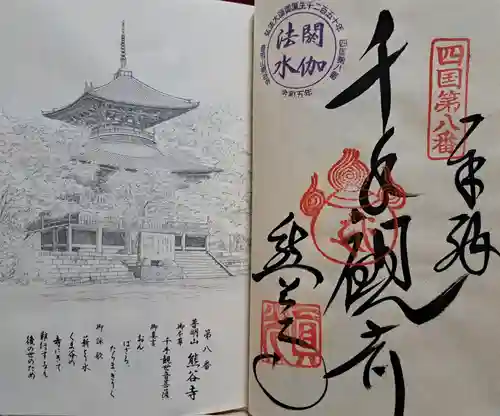 第八番
普明山 熊谷寺
御本尊
千手観世音菩薩
御真言
おん
ばざら
たらま きりく
御詠歌
薪とり水
くま谷の
寺にきて
難行するも
後の世のため
弘法大師御誕生千二百五十年
四国第八番
閼伽
法水
令和五年
四国第八番
奉拝
千手観音
熊谷寺